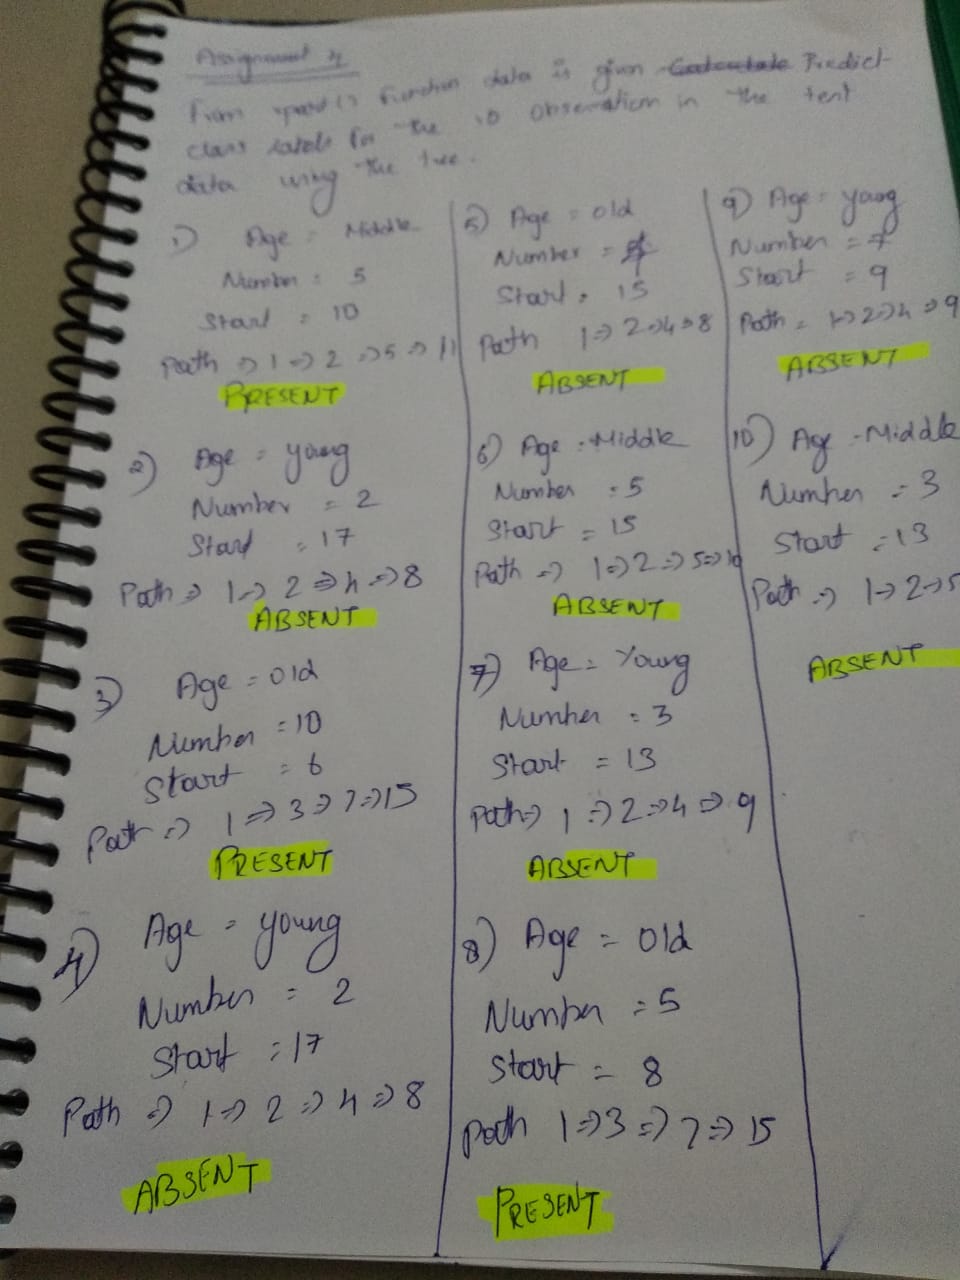 Assignment 4
From rpart() function data is given Predict
class labels for the 10 observation in the test
data using the tree.
1) Age = Middle
Number = 5
Start = 10
Path => 1 => 2 => 5 => 11
PRESENT
2) Age = young
Number = 2
Start = 17
Path => 1 => 2 => 4 => 8
ABSENT
3) Age = Old
Number = 10
Start = 6
Path => 1 => 3 => 7 => 15
PRESENT
4) Age = young
Number = 2
Start = 17
Path => 1 => 2 => 4 => 8
ABSENT
5) Age = Old
Number =
Start = 15
Path 1 => 2 => 4 => 8
ABSENT
6) Age = Middle
Number = 5
Start = 15
Path => 1 => 2 => 5 => 10
ABSENT
7) Age = Young
Number = 3
Start = 13
Path => 1 => 2 => 4 => 9
ABSENT
8) Age = Old
Number = 5
Start = 8
Path 1 => 3 => 7 => 15
PRESENT
9) Age = young
Number = 7
Start = 9
Path = 1 => 2 => 4 => 9
ABSENT
10) Age = Middle
Number = 3
Start = 13
Path => 1 => 2 => 5
ABSENT